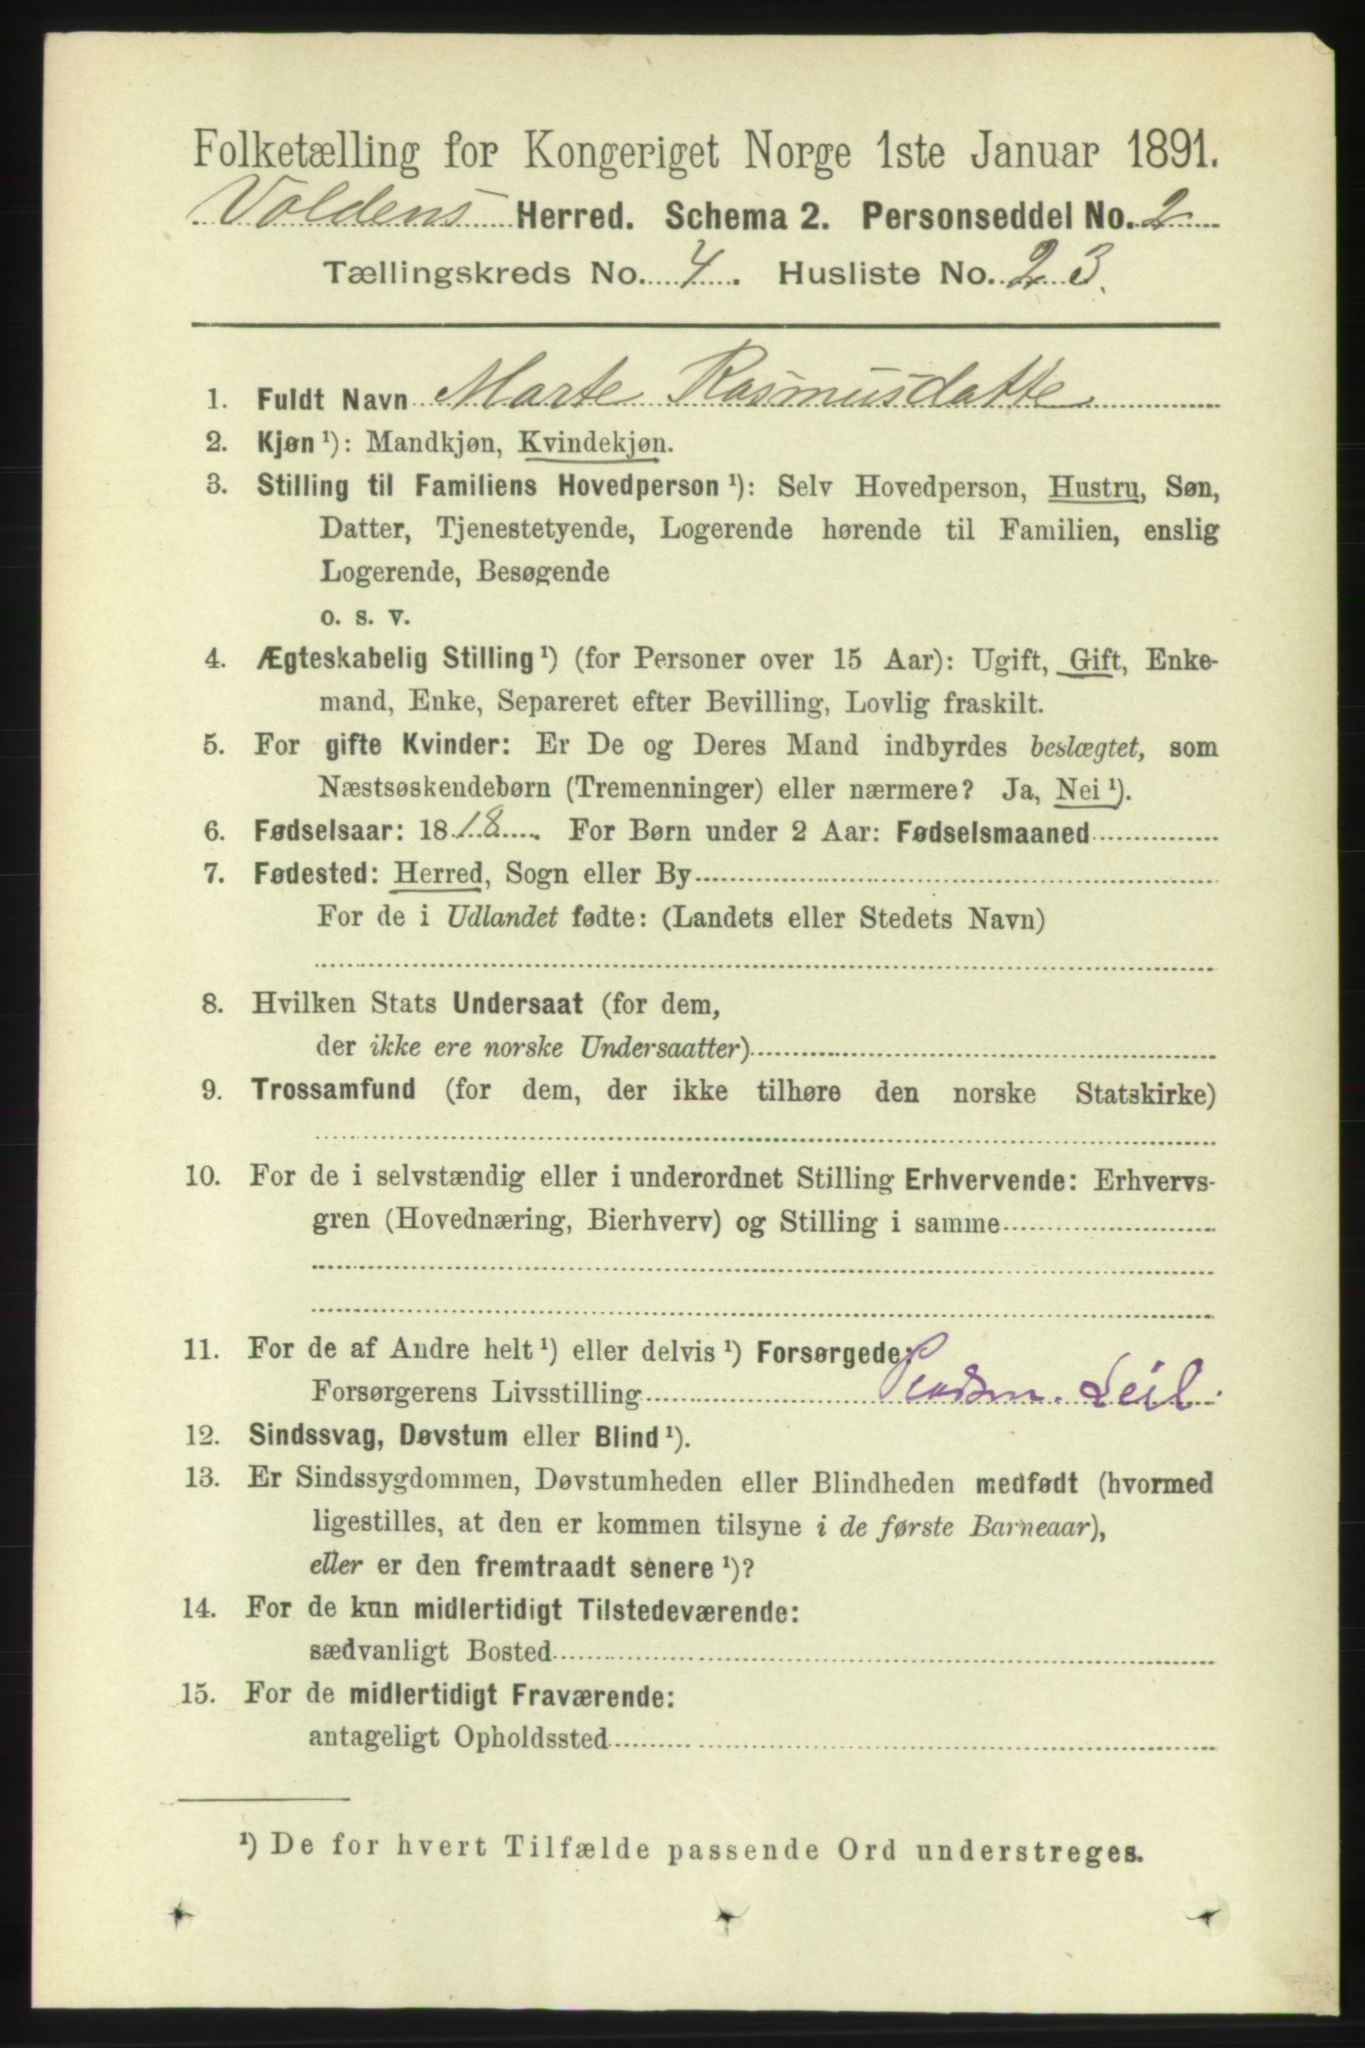 Folketælling for Kongeriget Norge 1ste Januar 1891.
Voldens Herred. Schema 2. Personseddel No. 2
Tællingskreds No. 4. Husliste No. 23.
1. Fuldt Navn Marte Rasmusdatte
2. Kjøn ¹): Mandkjøn, Kvindekjøn.
3. Stilling til Familiens Hovedperson ¹): Selv Hovedperson, Hustru, Søn,
Datter, Tjenestetyende, Logerende hørende til Familien, enslig
Logerende, Besøgende
o. s. v.
4. Ægteskabelig Stilling ¹) (for Personer over 15 Aar): Ugift, Gift, Enke-
mand, Enke, Separeret efter Bevilling, Lovlig fraskilt.
5. For gifte Kvinder: Er De og Deres Mand indbyrdes beslægtet, som
Næstsøskendebørn (Tremenninger) eller nærmere? Ja, Nei ¹).
6. Fødselsaar: 1818. For Børn under 2 Aar: Fødselsmaaned
7. Fødested: Herred, Sogn eller By
For de i Udlandet fødte: (Landets eller Stedets Navn)
8. Hvilken Stats Undersaat (for dem,
der ikke ere norske Undersaatter)
9. Trossamfund (for dem, der ikke tilhøre den norske Statskirke)
10. For de i selvstændig eller i underordnet Stilling Erhvervende: Erhvervs-
gren (Hovednæring, Bierhverv) og Stilling i samme
11. For de af Andre helt ¹) eller delvis ¹) Forsørgede:
Forsørgerens Livsstilling Leil.
12. Sindssvag, Døvstum eller Blind ¹).
13. Er Sindssygdommen, Døvstumheden eller Blindheden medfødt (hvormed
ligestilles, at den er kommen tilsyne i de første Barneaar),
eller er den fremtraadt senere ¹)?
14. For de kun midlertidigt Tilstedeværende:
sædvanligt Bosted
15. For de midlertidigt Fraværende:
antageligt Opholdssted
¹) De for hvert Tilfælde passende Ord understreges.